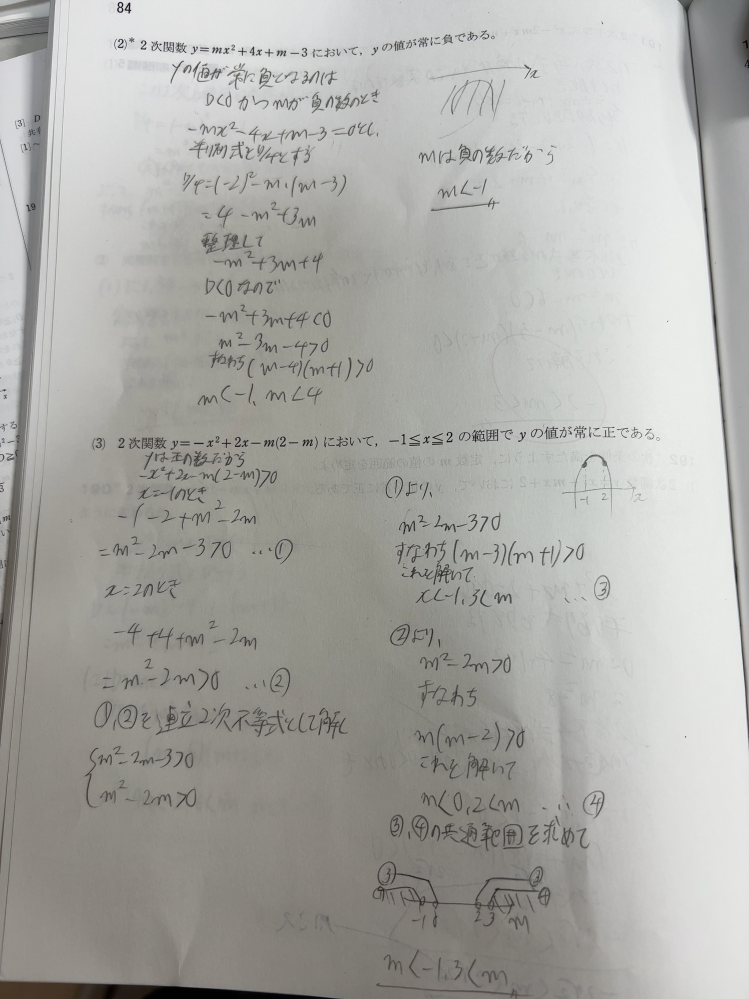 84
(2)* 2次関数 y=mx²+4x+m-3 において，yの値が常に負である。
yの値が常に負となるのは
D<0 かつ mが負の数のとき
-mx²-4x+m-3=0とし、
判別式をD/4とする
D/4=(-2)²-m・(m-3)
=4-m²+3m
整理して
-m²+3m+4
D<0なので
-m²+3m+4<0
m²-3m-4>0
すなわち(m-4)(m+1)>0
m<-1, m<4
x
mは負の数だから
m<-1
(3) 2次関数 y=-x²+2x-m(2-m) において，-1≦x≦2 の範囲で y の値が常に正である。
yは正の数だから
-x²+2x-m(2-m)>0
x=-1のとき
-1-2+m²-2m
=m²-2m-3>0 …①
x=2のとき
-4+4+m²-2m
=m²-2m>0 …②
①,②を連立2次不等式として解く
m²-2m-3>0
m²-2m>0
-1 2 x
①より、
m²-2m-3>0
すなわち(m-3)(m+1)>0
これを解いて
x<-1,3<m …③
②より、
m²-2m>0
すなわち
m(m-2)>0
これを解いて
m<0,2<m …④
③,④の共通範囲を求めて
③ ③
④ ④
-1 0 2 3 m
m<-1,3<m
[3] D
[1]～
19